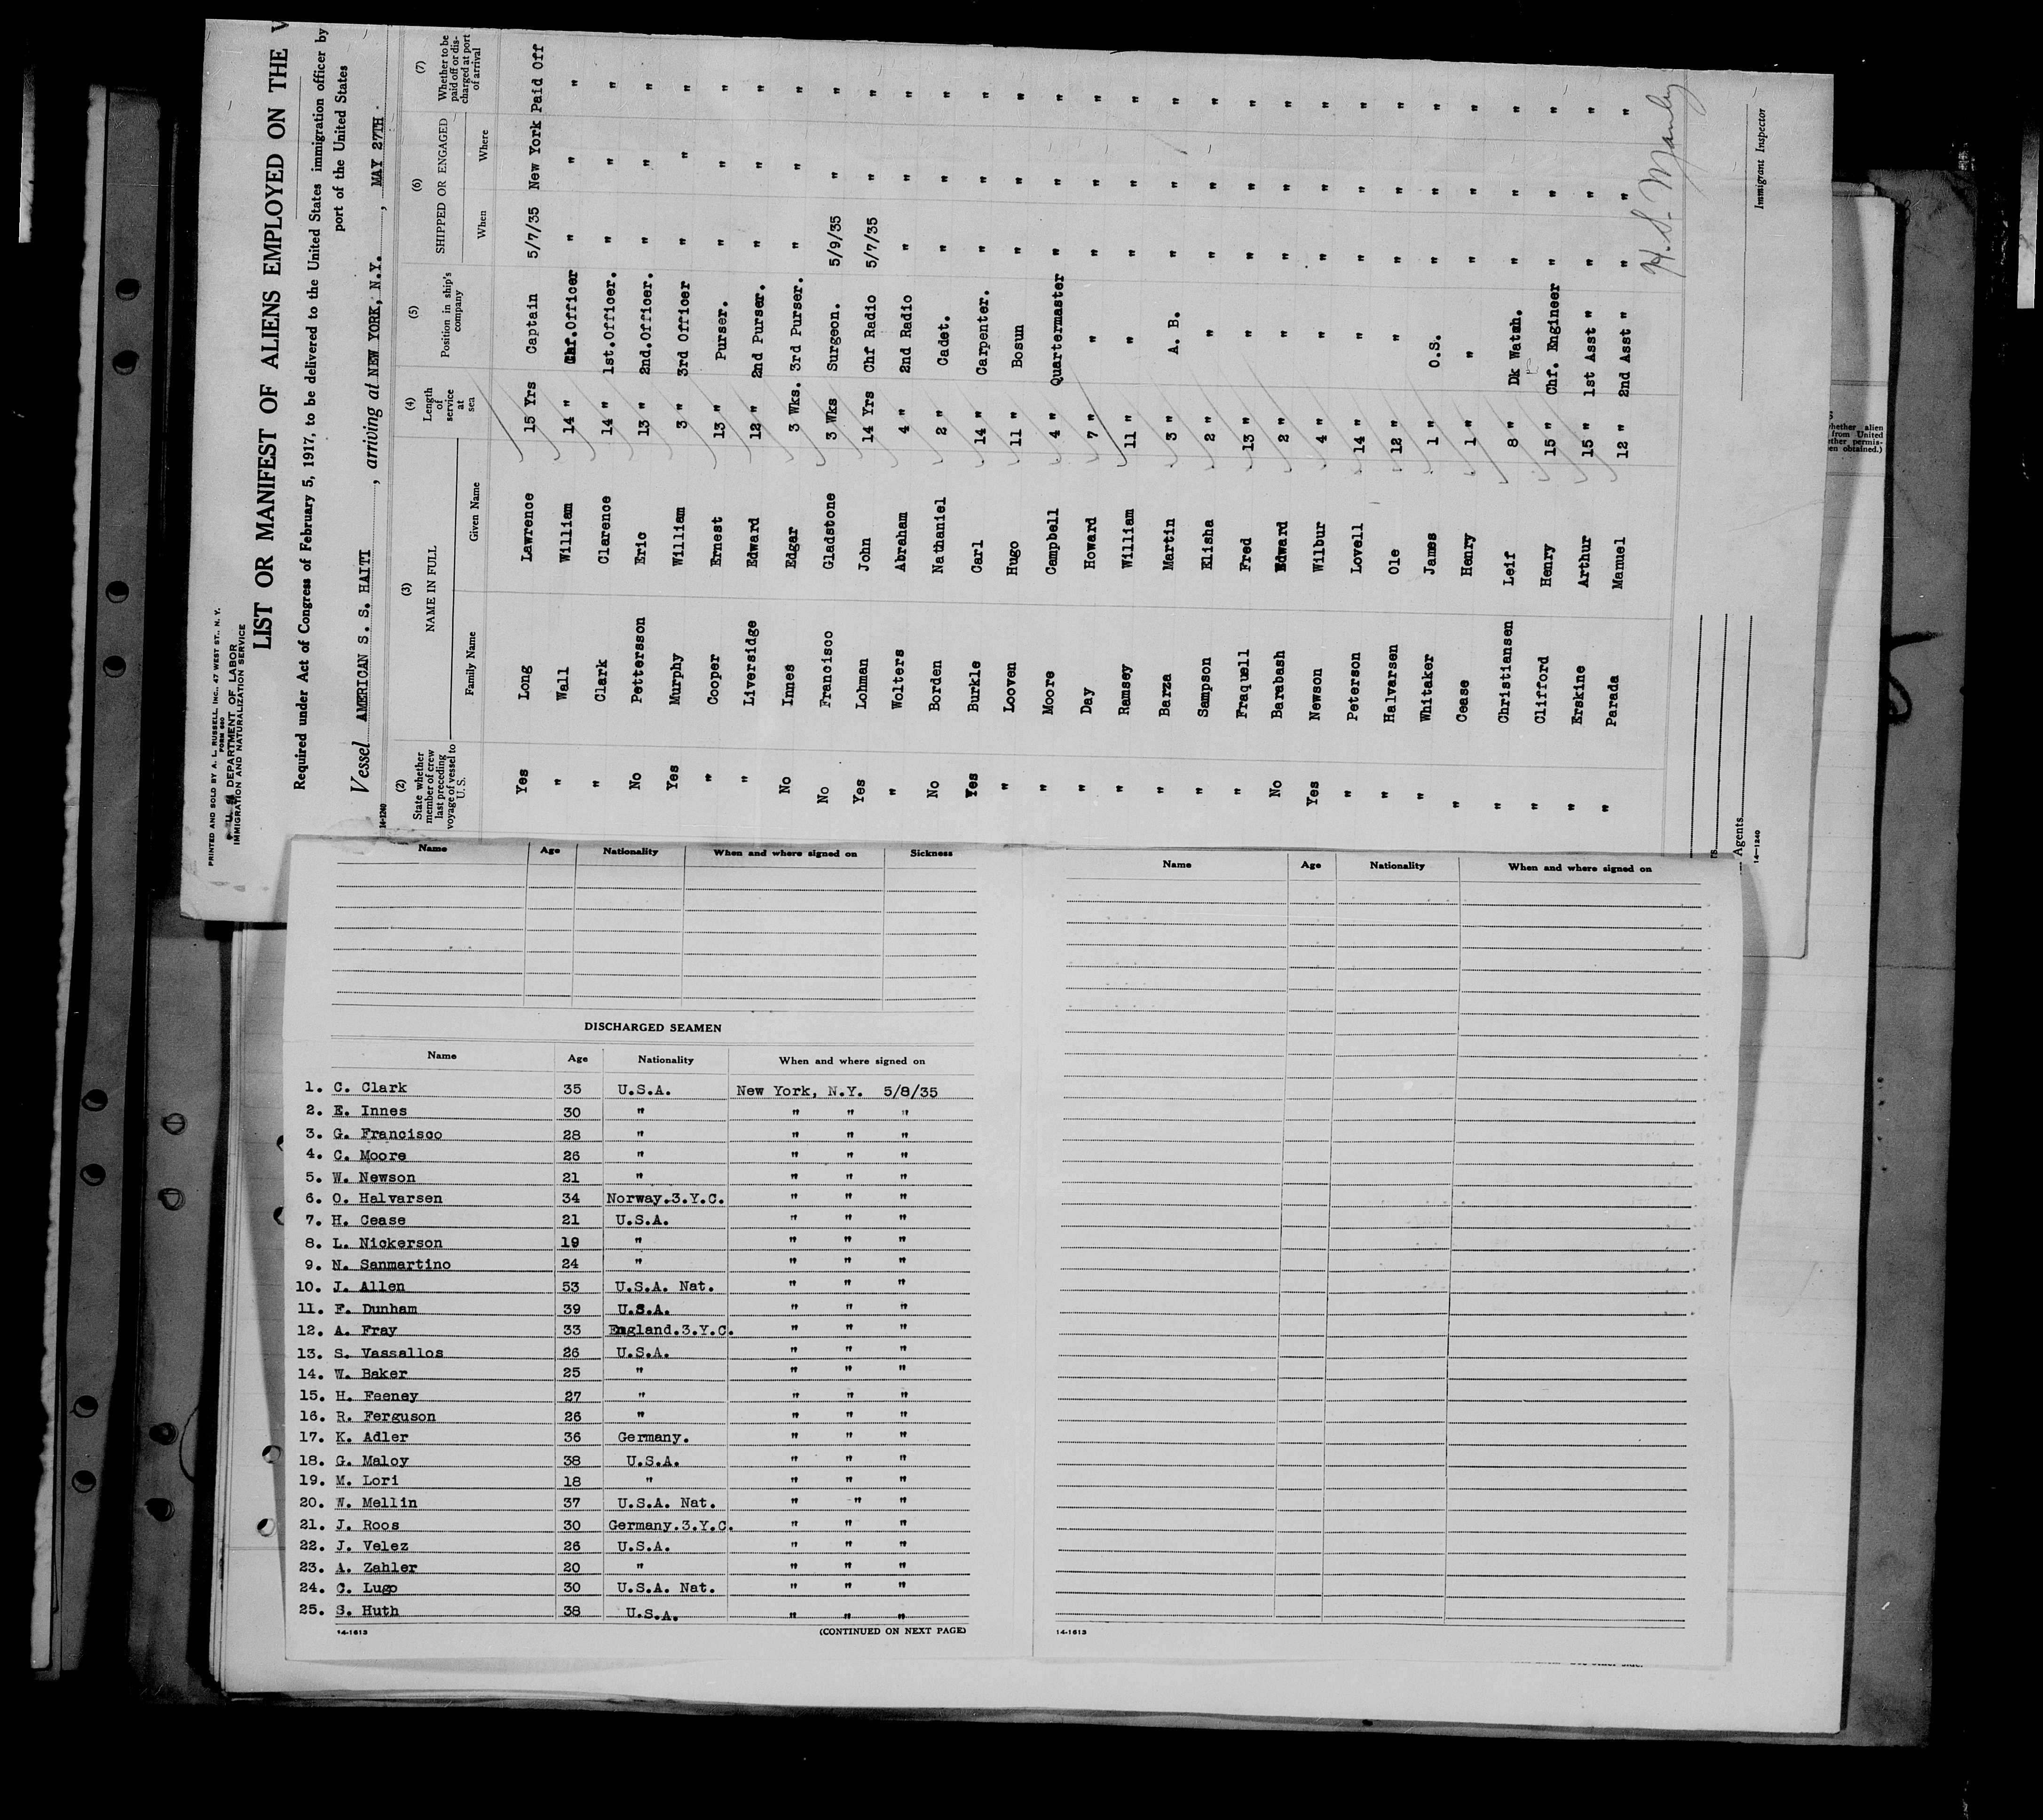 PRINTED AND SOLD BY A. L. RUSSELL, INC., 47 WEST ST., N. Y.
FORM 680
U. S. DEPARTMENT OF LABOR
IMMIGRATION AND NATURALIZATION SERVICE
LIST OR MANIFEST OF ALIENS EMPLOYED ON THE
Required under Act of Congress of February 5, 1917, to be delivered to the United States immigration officer by
port of the United States
Vessel AMERICAN S. S. HAITI , arriving at NEW YORK, N.Y. , MAY 27TH
14-1240
(2) State whether member of crew last preceding voyage of vessel to U. S. (3) NAME IN FULL Family Name Given Name (4) Length of service at sea (5) Position in ship's company (6) SHIPPED OR ENGAGED When Where (7) Whether to be paid off or discharged at port of arrival
Yes Long Lawrence 15 Yrs Captain 5/7/35 New York Paid Off
" Wall William 14 " Chf.Officer " " "
" Clark Clarence 14 " 1st.Officer. " " "
No Pettersson Eric 13 " 2nd.Officer. " " "
Yes Murphy William 3 " 3rd Officer " " "
" Cooper Ernest 13 " Purser. " " "
" Liversidge Edward 12 " 2nd Purser. " " "
No Innes Edgar 3 Wks. 3rd Purser. " " "
No Francisco Gladstone 3 Wks Surgeon. 5/9/35 " "
Yes Lohman John 14 Yrs Chf Radio 5/7/35 " "
" Wolters Abraham 4 " 2nd Radio " " "
No Borden Nathaniel 2 " Cadet. " " "
Yes Burkle Carl 14 " Carpenter. " " "
" Looven Hugo 11 " Bosun " " "
" Moore Campbell 4 " Quartermaster " " "
" Day Howard 7 " " " " "
" Ramsey William 11 " " " " "
" Barza Martin 3 " A. B. " " "
" Sampson Elisha 2 " " " " "
" Fraquell Fred 13 " " " " "
No Barabash Edward 2 " " " " "
Yes Newson Wilbur 4 " " " " "
" Peterson Lovell 14 " " " " "
" Halvarsen Ole 12 " " " " "
" Whitaker James 1 " O.S. " " "
" Cease Henry 1 " " " " "
" Christiansen Leif 8 " Dk Watch. " " "
" Clifford Henry 15 " Chf. Engineer " " "
" Erskine Arthur 15 " 1st Asst " " " "
" Parada Manuel 12 " 2nd Asst " " " "
H. S. Manley
Immigrant Inspector
Agents
14-1240
Name Age Nationality When and where signed on Sickness
DISCHARGED SEAMEN
Name Age Nationality When and where signed on
1. C. Clark 35 U.S.A. New York, N.Y. 5/8/35
2. E. Innes 30 " " " "
3. G. Francisco 28 " " " "
4. C. Moore 26 " " " "
5. W. Newson 21 " " " "
6. O. Halvarsen 34 Norway.3.Y.C. " " "
7. H. Cease 21 U.S.A. " " "
8. L. Nickerson 19 " " " "
9. N. Sanmartino 24 " " " "
10. J. Allen 53 U.S.A. Nat. " " "
11. F. Dunham 39 U.S.A. " " "
12. A. Fray 33 England.3.Y.C. " " "
13. S. Vassallos 26 U.S.A. " " "
14. W. Baker 25 " " " "
15. H. Feeney 27 " " " "
16. R. Ferguson 26 " " " "
17. K. Adler 36 Germany. " " "
18. G. Maloy 38 U.S.A. " " "
19. M. Lori 18 " " " "
20. W. Mellin 37 U.S.A. Nat. " " "
21. J. Roos 30 Germany.3.Y.C. " " "
22. J. Velez 26 U.S.A. " " "
23. A. Zahler 20 " " " "
24. C. Lugo 30 U.S.A. Nat. " " "
25. S. Huth 38 U.S.A. " " "
14-1613 (CONTINUED ON NEXT PAGE)
Name Age Nationality When and where signed on
14-1613